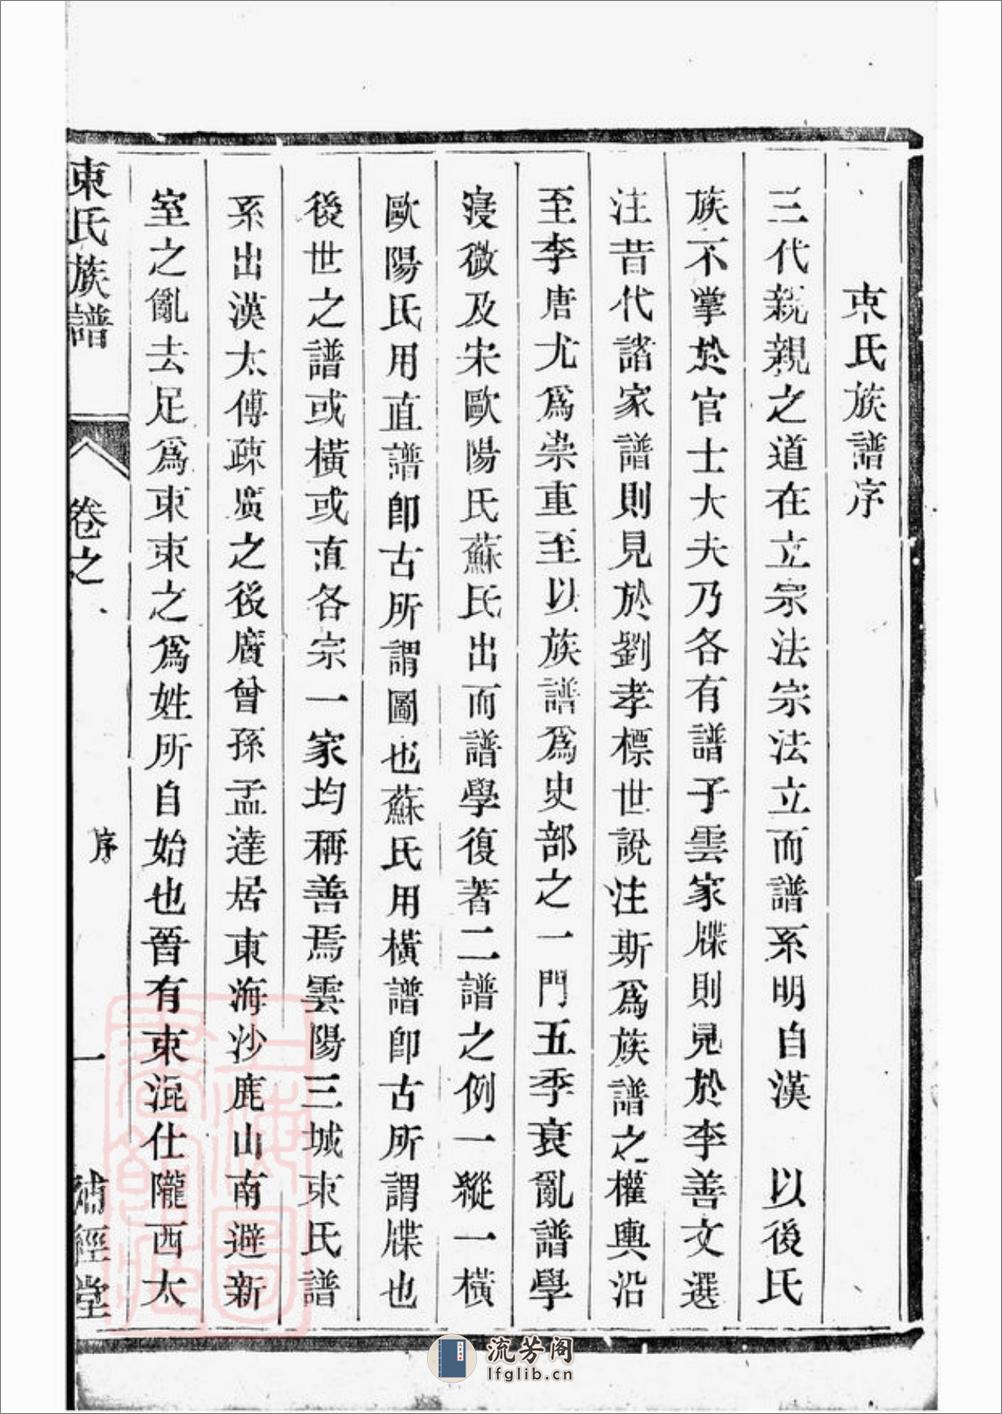 束氏族譜序
三代親親之道在立宗法宗法立而譜系明自漢　以後氏
族不掌於官士大夫乃各有譜子雲家牒則見於李善文選
注昔代諸家譜則見於劉孝標世說注斯爲族譜之權輿沿
至李唐尤爲崇重至以族譜爲史部之一門五季衰亂譜學
寖微及宋歐陽氏蘇氏出而譜學復著二譜之例一縱一橫
歐陽氏用直譜卽古所謂圖也蘇氏用橫譜卽古所謂牒也
後世之譜或橫或直各宗一家均稱善焉雲陽三城束氏譜
系出漢太傅疎廣之後廣曾孫孟達居東海沙鹿山南避新
室之亂去足爲束束之爲姓所自始也晉有束混仕隴西太
束氏族譜
卷之一
序
一
經堂
流芳阁
lfglib.cn